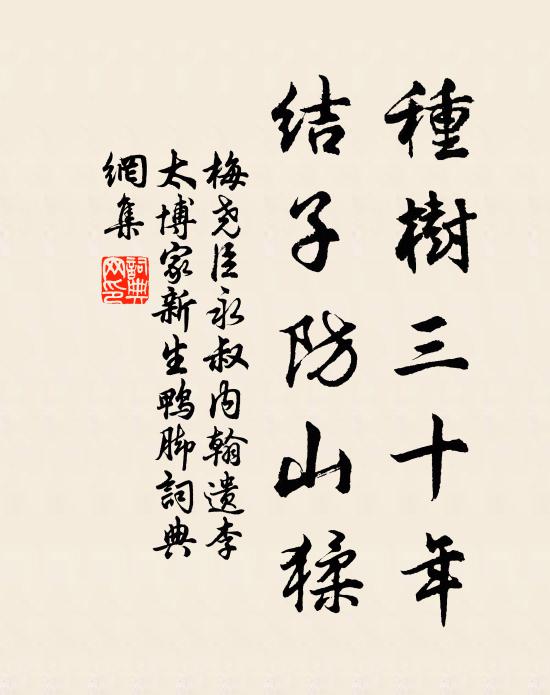 種樹三十年
結子防山猱
梅堯臣永叔內翰遺李
太博家新生鴨脚詞典
網集
詞典網印